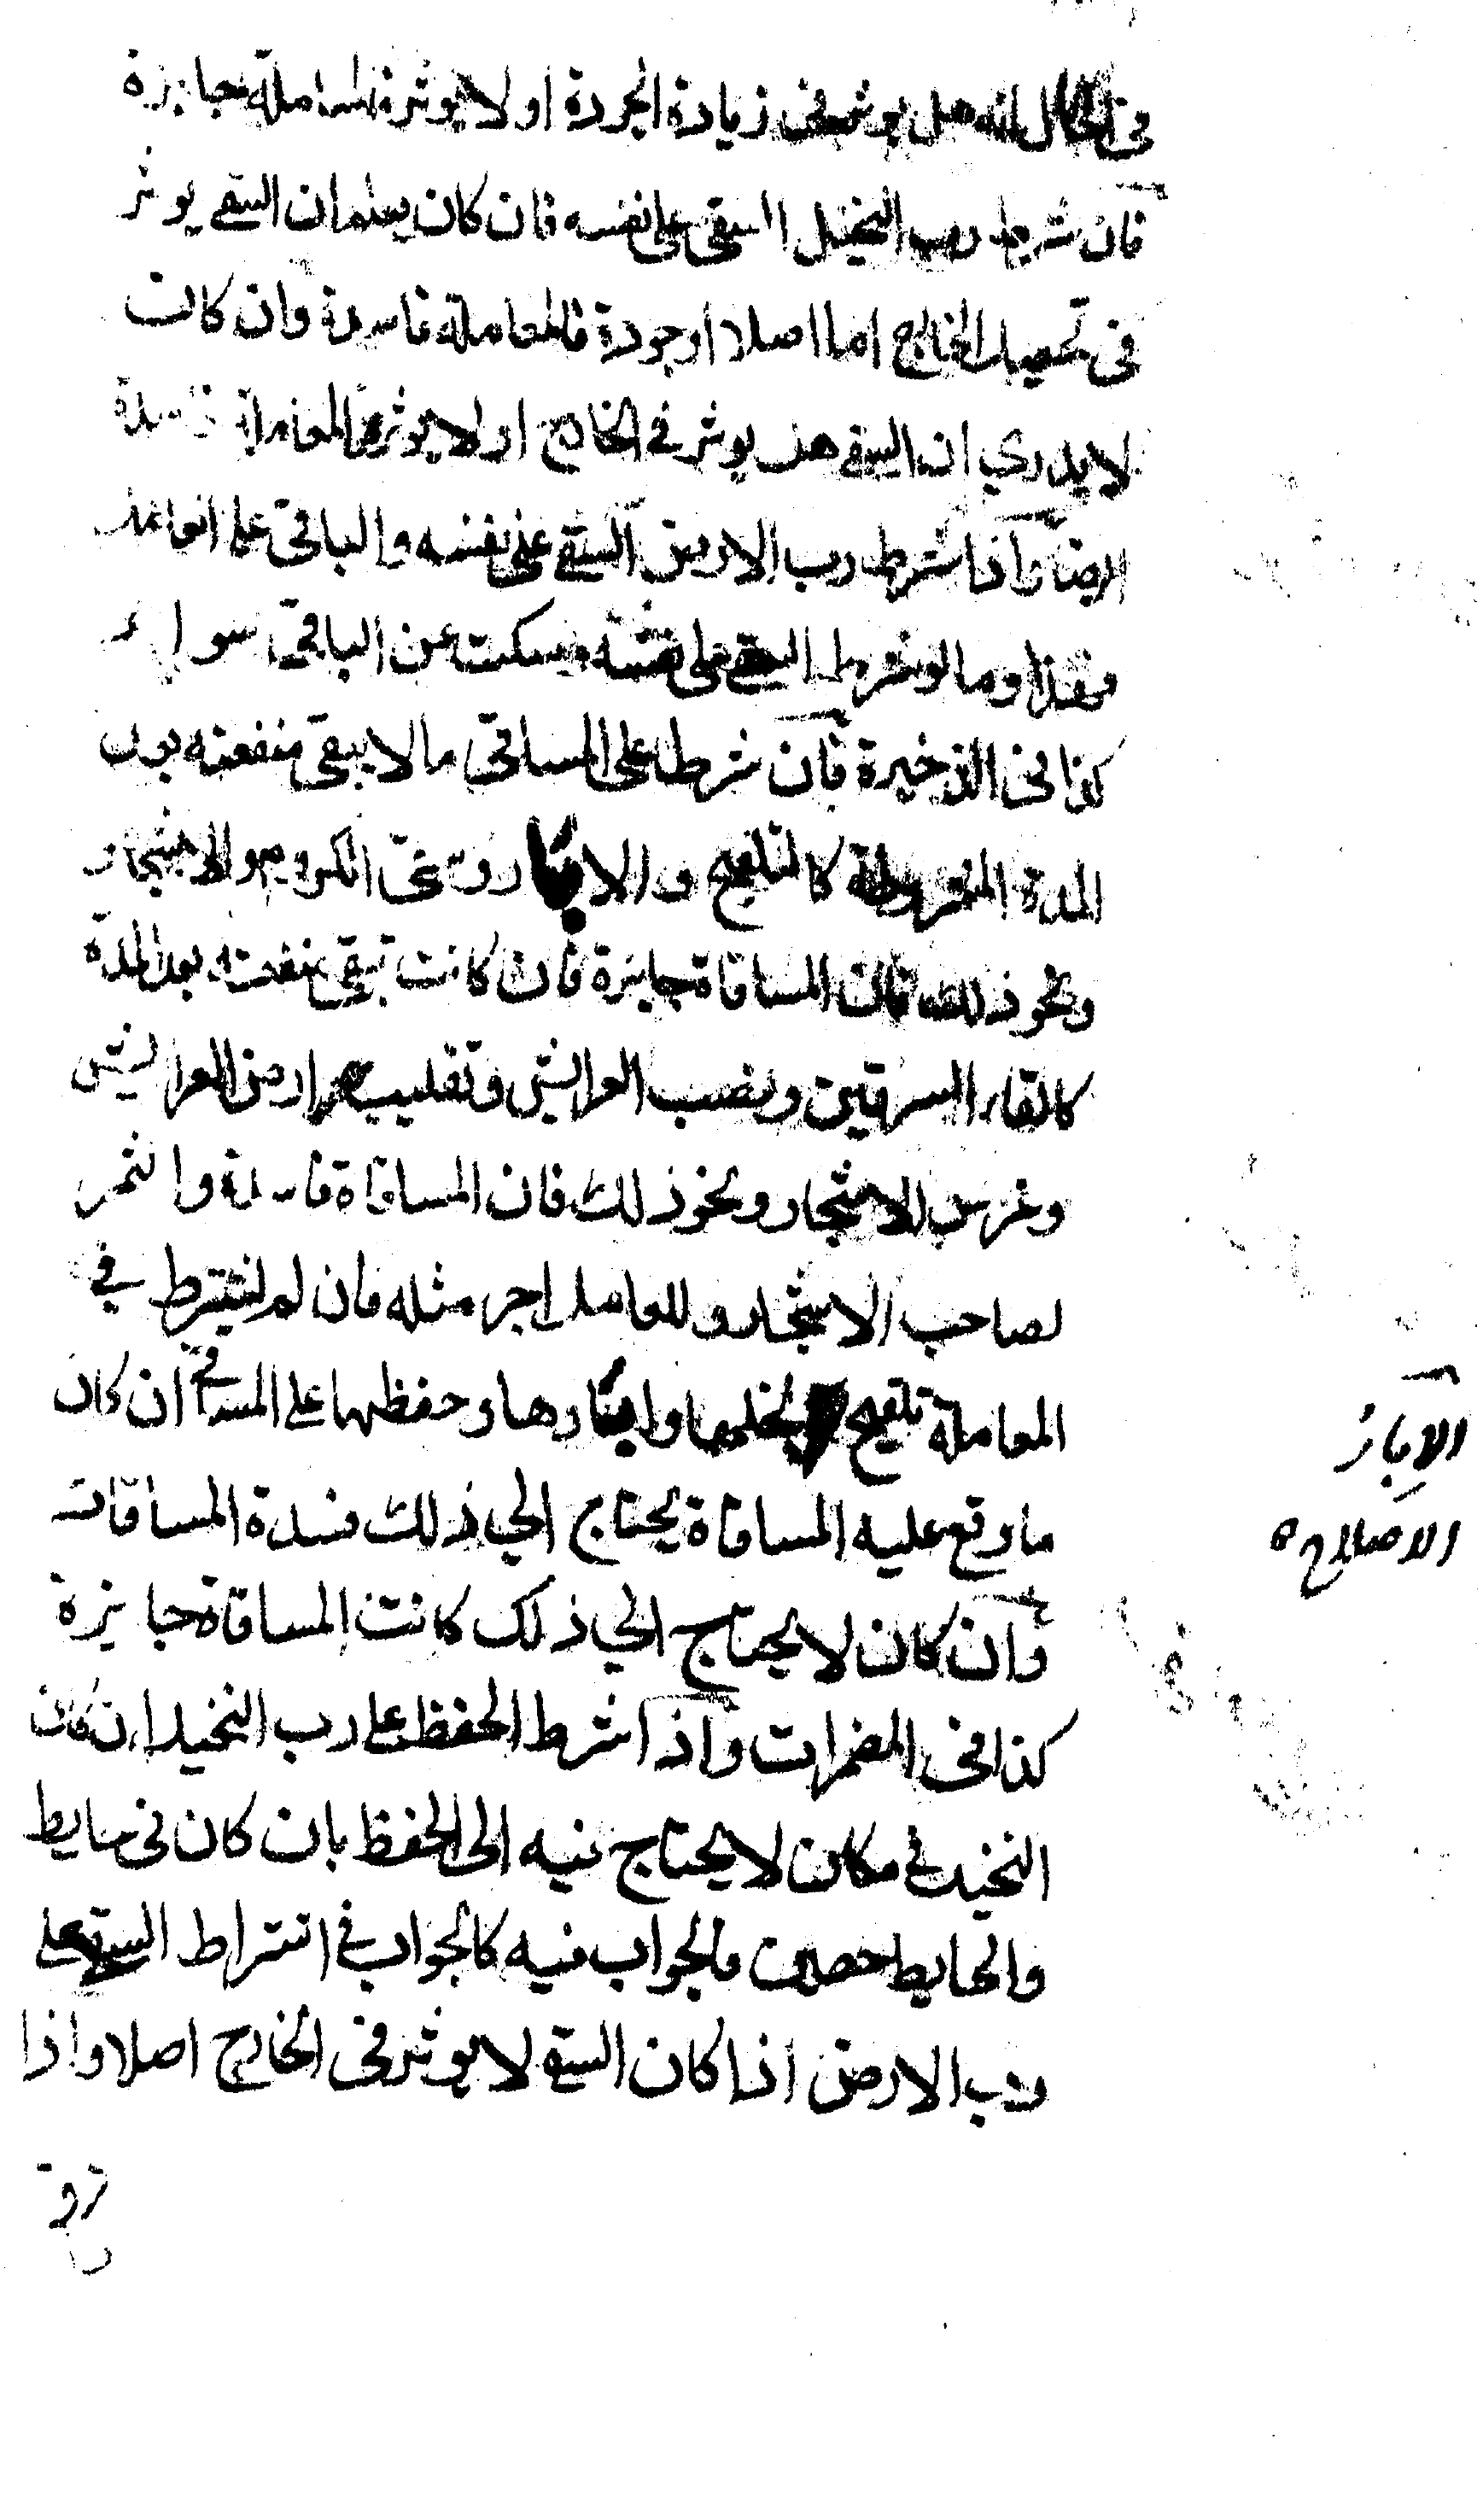 في الحال انه هل يوثر في زيادة الجودة او لا يوثر فالمعاملة جايزة
فان شرط رب النخيل السقي على نفسه فان كان يعلم ان السقي يوثر
في تحصيل الخارج اما اصلا او جودة فالمعاملة فاسدة وان كان
لا يدري ان السقي هل يوثر في الخارج او لا يوثر فالمعاملة فاسدة
ايضا واذا شرط رب الارض السقي على نفسه والباقي على العامل
فهذا وما لو شرط السقي على نفسه وسكت عن الباقي سواء
كذا في الذخيرة فان شرط على المساقي ما لا يبقى منفعته بعد
المدة المشروطة كالتلقيح والابار وسقي الكروم والاشجار
ونحو ذلك فان المساقاة جايزة فان كانت تبقى منفعته بعد المدة
كالقاء السرقين ونصب العرايش وتقليب ارض العرايش
وغرس الاشجار ونحو ذلك فان المساقاة فاسدة والثمر
لصاحب الاشجار وللعامل اجر مثله فان لم يشترط في
المعاملة تلقيح نخلها وابارها وحفظها على المساقي ان كان
ما وقع عليه المساقاة يحتاج الي ذلك فسدة المساقات
وان كان لا يحتاج الي ذلك كانت المساقاة جايزة
كذا في المضمرات واذا شرط الحفظ على رب النخيل ان كان
النخيل في مكان لا يحتاج فيه الى الحفظ بان كان في حايط
والحايط حصين فالجواب فيه كالجواب في اشتراط السقي على
رب الارض اذا كان السقي لا يوثر في الخارج اصلا واذا
الابار
الاصلاح ه